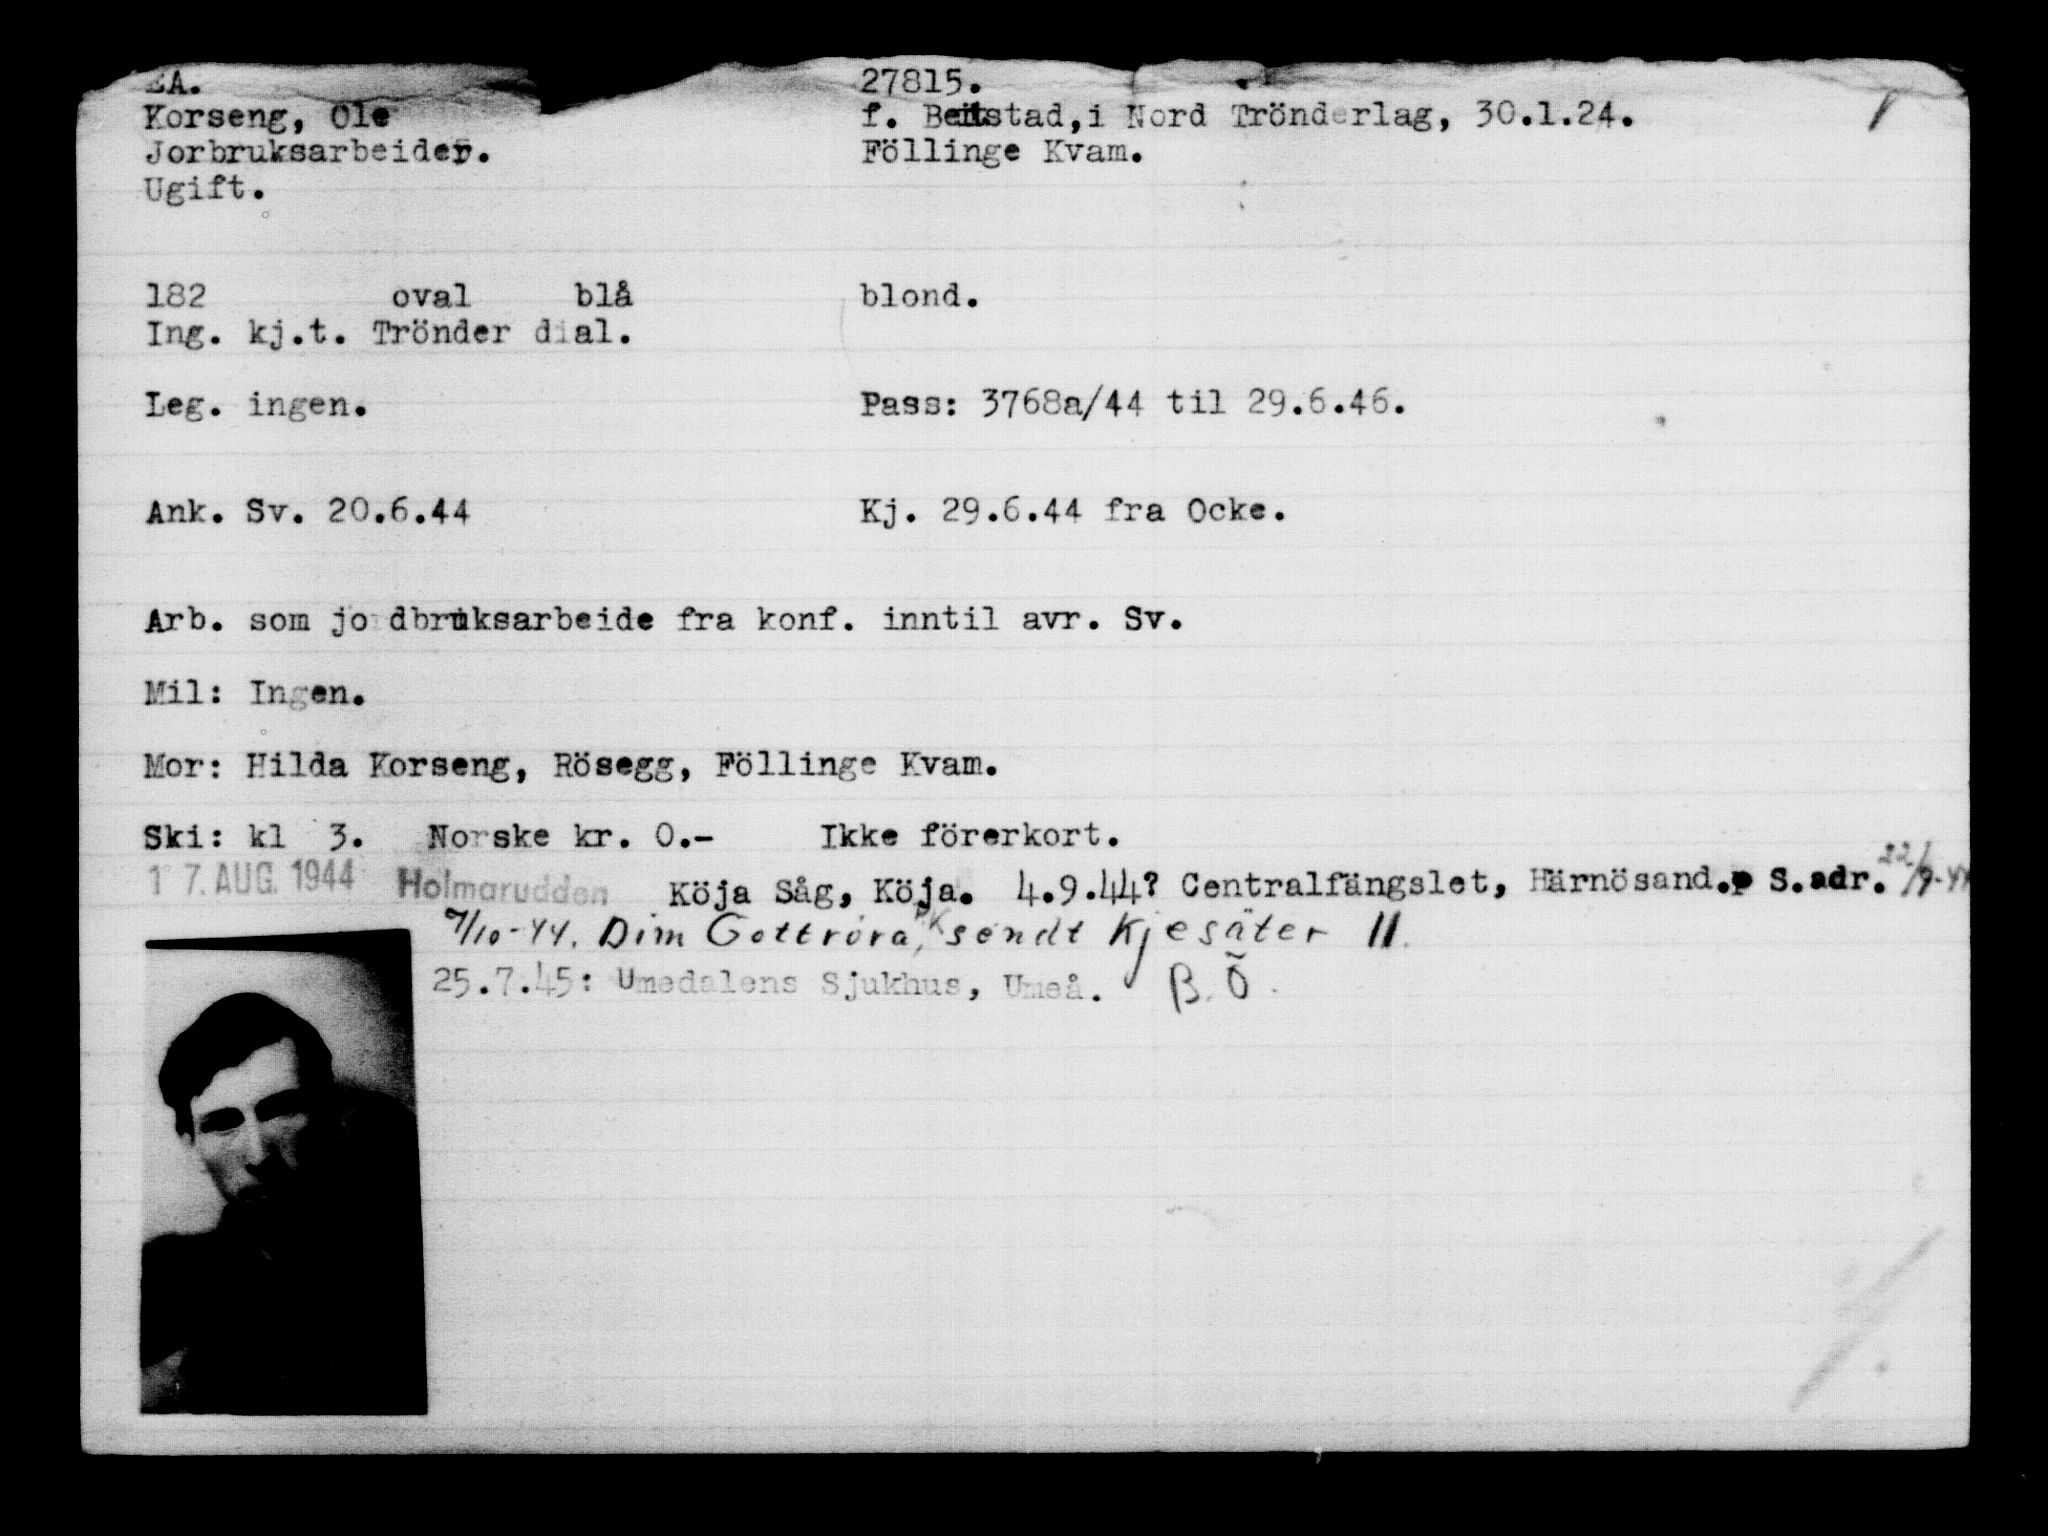 EA. 27815.
Korseng, Ole f. Beitstad, i Nord Trönderlag, 30.1.24.
Jorbruksarbeider. Föllinge Kvam.
Ugift.
182 oval blå blond.
Ing. kj.t. Trönder dial.
Leg. ingen. Pass: 3768a/44 til 29.6.46.
Ank. Sv. 20.6.44 Kj. 29.6.44 fra Ocke.
Arb. som jordbruksarbeide fra konf. inntil avr. Sv.
Mil: Ingen.
Mor: Hilda Korseng, Rösegg, Föllinge Kvam.
Ski: kl 3. Norske kr. 0.- Ikke förerkort.
17. AUG. 1944 Holmarudden Köja Såg, Köja. 4.9.44? Centralfängslet, Härnösand. S.adr. 22/9-44
7/10-44. Dim Gottröra, PK sendt Kjesäter II.
25.7.45: Umedalens Sjukhus, Umeå. B.Ö.